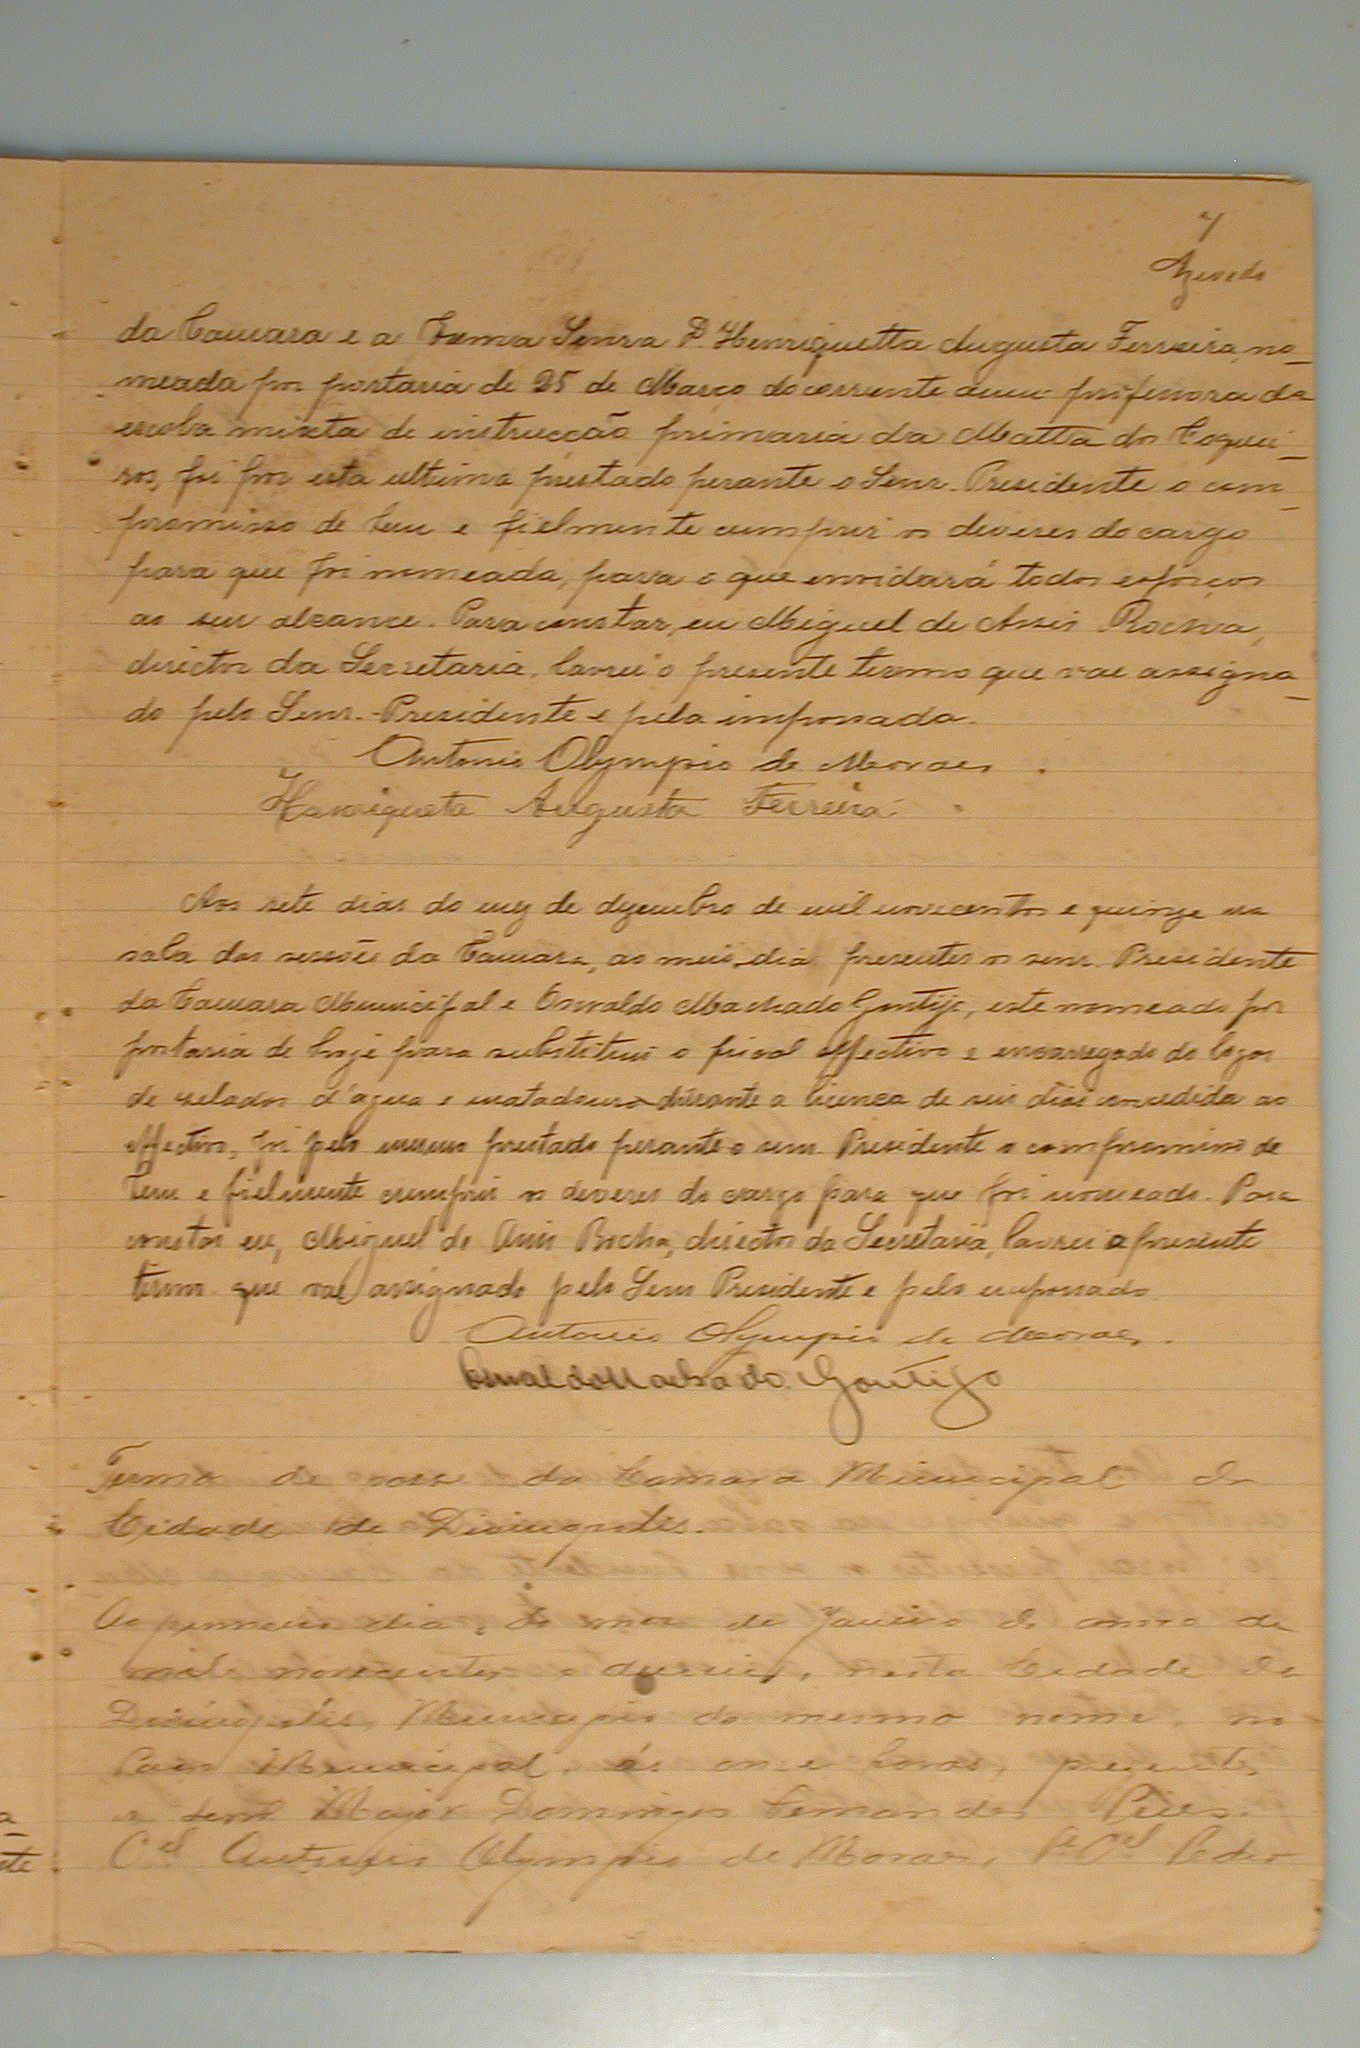 7
Azevedo
da Camara e a Exma Senra D. Henriquetta Augusta Ferreira, no-
meada por portaria de 25 de Março do corrente anno professora da
escola mixta de instrucção primaria da Matta dos Coquei-
ros, foi por esta ultima prestado perante o Senr. Presidente o com-
promisso de bem e fielmente cumprir os deveres do cargo
para que foi nomeada, para o que envidará todos esforços
ao seu alcance. Para constar, eu Miguel de Assis Rocha,
director da Secretaria, lavrei o presente termo que vae assigna-
do pelo Senr. Presidente e pela impossada.
Antonio Olympio de Moraes.
Henriqueta Augusta Ferreira.
Aos sete dias do mez de dezembro de mil novecentos e quinze na
sala das sessões da Camara, ao meio dia presentes os senr. Presidente
da Camara Municipal e Oswaldo Machado Gontijo, este nomeado por
portaria de hoje para substituir o fiscal effectivo e encarregado do logar
de zelador d'água e matadouro durante a licença de seis dias concedida ao
effectivo, foi pelo mesmo prestado perante o senr. Presidente o compromisso de
bem e fielmente cumprir os deveres do cargo para que foi nomeado. Para
constar eu, Miguel de Assis Rocha, director da Secretaria, lavrei o presente
termo que vae assignado pelo Senr Presidente e pelo impossado.
Antonio Olympio de Moraes.
Oswaldo Machado Gontijo
Termo de posse da Camara Municipal da
Cidade de Divinopolis.
Ao primeiro dia, do mez de Janeiro do anno de
mil novecentos e deseseis, nesta Cidade de
Divinópolis, Municipio do mesmo nome, no
Paço Municipal, ás onze horas, presentes
os senr Major Domingos Fernandes Pires.
Cel Antonio Olympio de Moraes, Pedro